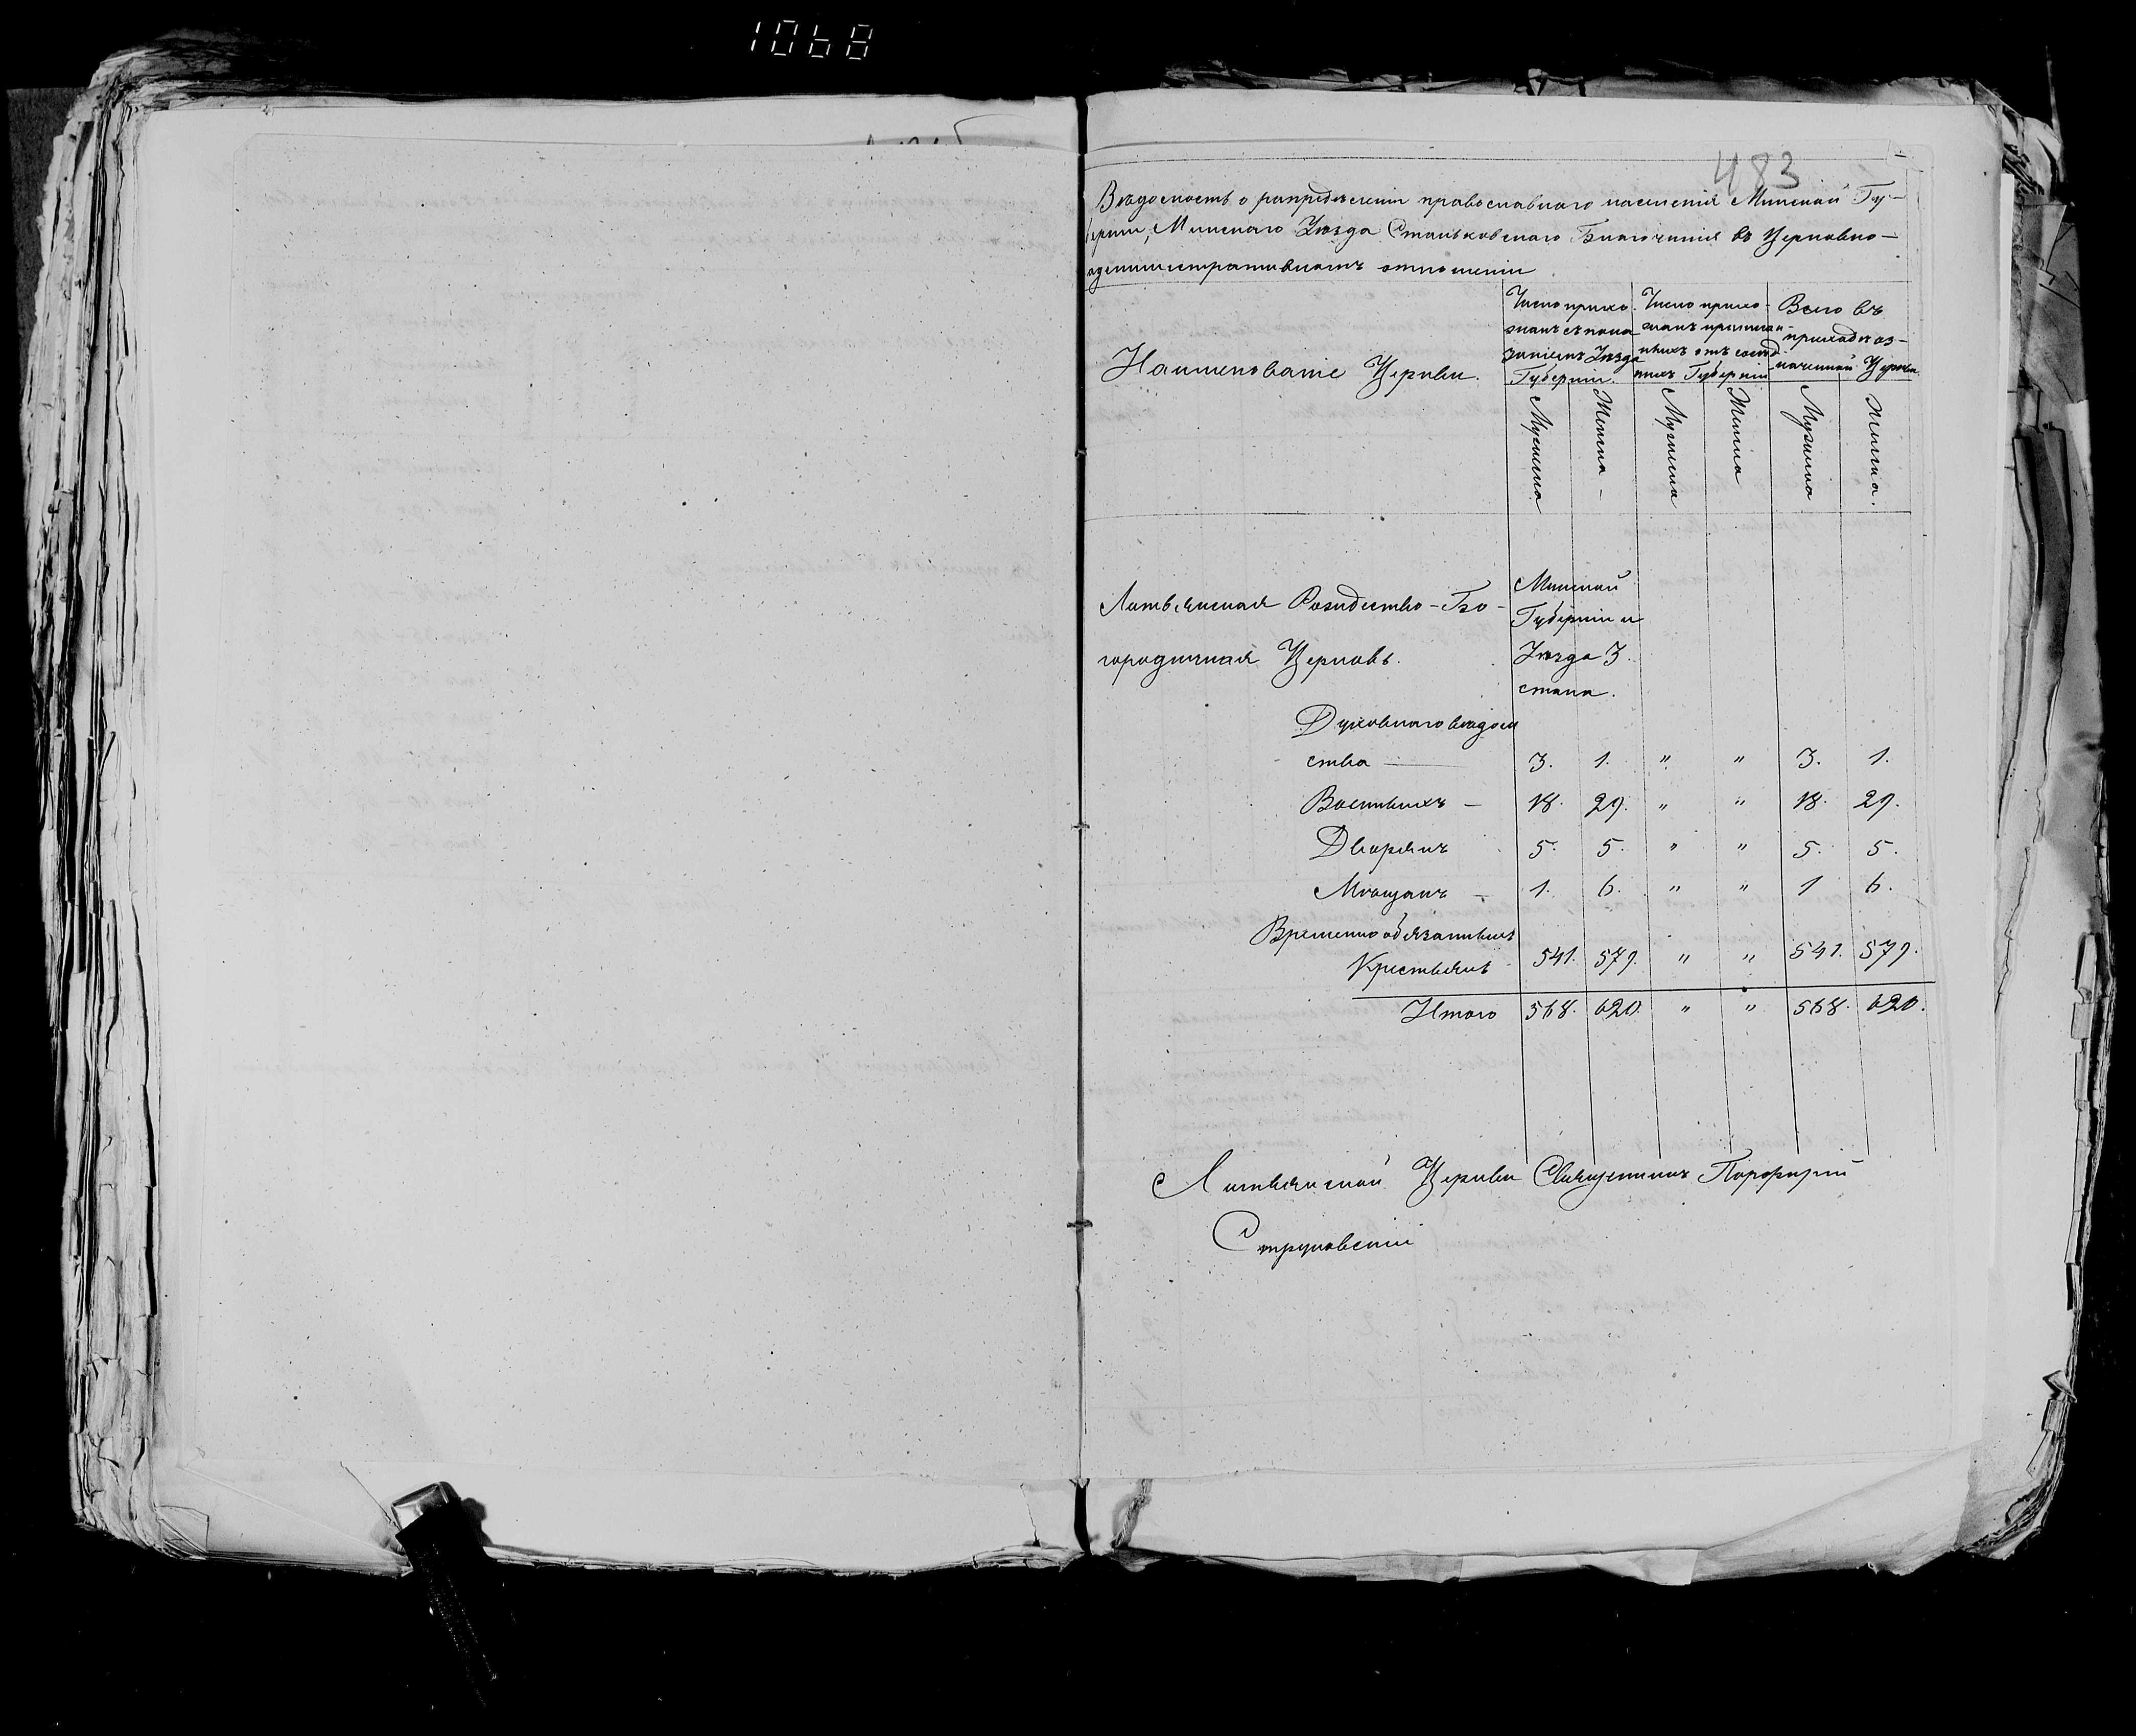 1068
483
Вѣдомость о распредѣленіи православнаго населенія Минской Гу-
берніи, Минскаго Уѣзда Станьковскаго Благочинія въ Церковно-
административномъ отношеніи
Наименованіе Церкви.
Число прихо-
жанъ съ пока-
заніемъ Уѣзда
Губерніи.
Число прихо-
жанъ приписан-
ныхъ отъ сосѣд-
нихъ Губерній
Всего въ
приходѣ оз-
наченной Церкви
Мужеска
Женска -
Мужеска
Женска
Мужеска
Женска.
Литвянская Рождество-Бо-
городичная Церковь.
Минской
Губерніи и
Уѣзда 3.
стана.
Духовнаго вѣдом
ства — 3. 1. " " 3. 1.
Военныхъ — 18. 29. " " 18. 29.
Дворянъ 5. 5. " " 5. 5.
Мѣщанъ — 1. 6. " " 1 6.
Временно обязанныхъ
Крестьянъ 541. 579. " " 541. 579.
Итого 568. 620. " " 568. 620.
Литвянской Церкви Священникъ Порфирій